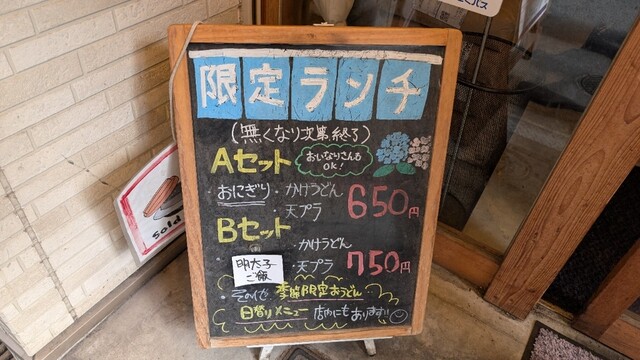 限定ランチ
(無くなり次第終了)
Aセット
おいなりさんも
OK!
・おにぎり ・かけうどん
・天プラ 650円
Bセット
明太子
ご飯
・かけうどん
・天プラ 750円
・その他 季節限定おうどん
日替りメニュー 店内にもあります!!
sold